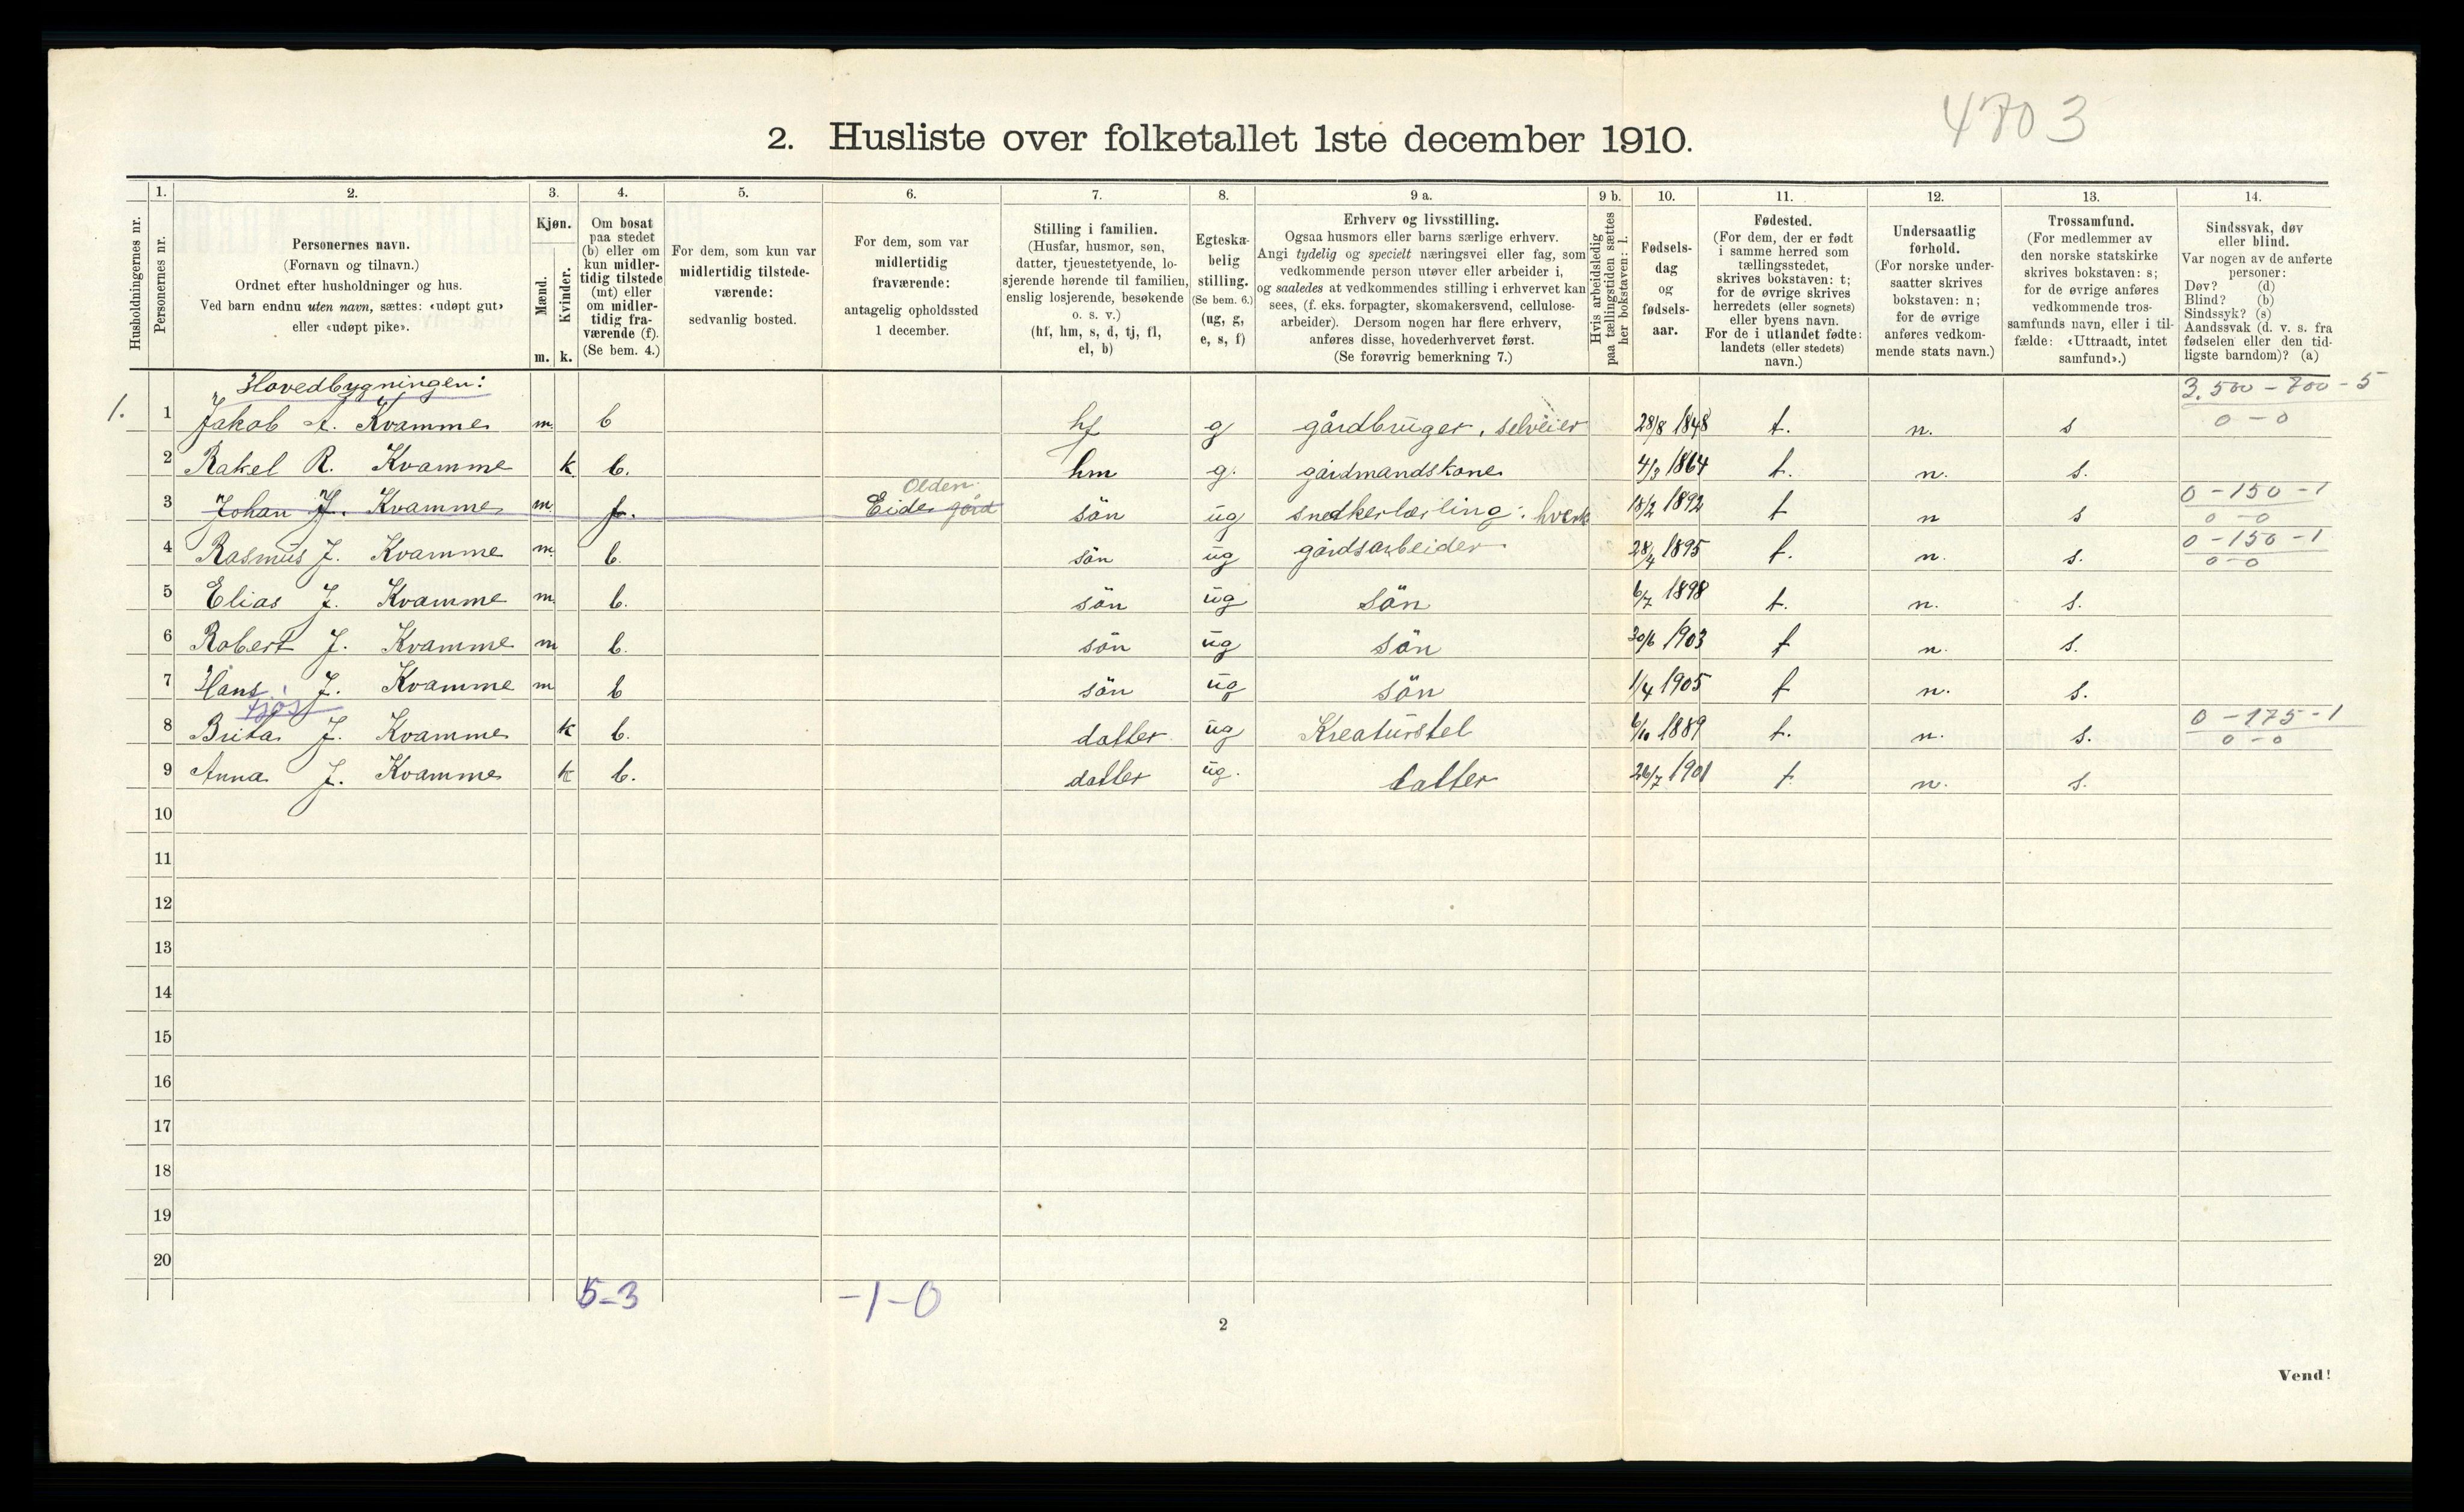 4703
2. Husliste over folketallet 1ste december 1910.
Husholdningernes nr.
1.
Personernes nr.
2.
Personernes navn.
(Fornavn og tilnavn.)
Ordnet efter husholdninger og hus.
Ved barn endnu uten navn, sættes: «udøpt gut»
eller «udøpt pike».
3.
Kjøn.
Mænd.
Kvinder.
m. k.
4.
Om bosat
paa stedet
(b) eller om
kun midler-
tidig tilstede
(mt) eller
om midler-
tidig fra-
værende (f).
(Se bem. 4.)
5.
For dem, som kun var
midlertidig tilstede-
værende:
sedvanlig bosted.
6.
For dem, som var
midlertidig
fraværende:
antagelig opholdssted
1 december.
7.
Stilling i familien.
(Husfar, husmor, søn,
datter, tjenestetyende, lo-
sjerende hørende til familien,
enslig losjerende, besøkende
o. s. v.)
(hf, hm, s, d, tj, fl,
el, b)
8.
Egteska-
belig
stilling.
(Se bem. 6.)
(ug, g,
e, s, f)
9 a.
Erhverv og livsstilling.
Ogsaa husmors eller barns særlige erhverv.
Angi tydelig og specielt næringsvei eller fag, som
vedkommende person utøver eller arbeider i,
og saaledes at vedkommendes stilling i erhvervet kan
sees, (f. eks. forpagter, skomakersvend, cellulose-
arbeider). Dersom nogen har flere erhverv,
anføres disse, hovederhvervet først.
(Se forøvrig bemerkning 7.)
9 b.
Hvis arbeidsledig
paa tællingstiden sættes
her bokstaven: l.
10.
Fødsels-
dag
og
fødsels-
aar.
11.
Fødested.
(For dem, der er født
i samme herred som
tællingsstedet,
skrives bokstaven: t;
for de øvrige skrives
herredets (eller sognets)
eller byens navn.
For de i utlandet fødte:
landets (eller stedets)
navn.)
12.
Undersaatlig
forhold.
(For norske under-
saatter skrives
bokstaven: n;
for de øvrige
anføres vedkom-
mende stats navn.)
13.
Trossamfund.
(For medlemmer av
den norske statskirke
skrives bokstaven: s;
for de øvrige anføres
vedkommende tros-
samfunds navn, eller i til-
fælde: «Uttraadt, intet
samfund».)
14.
Sindssvak, døv
eller blind.
Var nogen av de anførte
personer:
Døv? (d)
Blind? (b)
Sindssyk? (s)
Aandssvak (d. v. s. fra
fødselen eller den tid-
ligste barndom)? (a)
Hovedbygningen:
3.500 - 700 - 5
1. 1 Jakob A. Kvamme m. b hf g gårdbruger, selveier 28/8 1848 t. n. s 0 - 0
2 Rakel R. Kvamme k b. hm g. gårdmandskone 4/3 1864 t. n. s.
Olden 0 - 150 - 1
3 Johan J. Kvamme m. f. Eides gård sön ug snedkerlærling: hverk 18/2 1892 t n s 0 - 0
0 - 150 - 1
4 Rasmus J. Kvamme m. b. sön ug gårdsarbeider 28/4 1895 t. n. s. 0 - 0
5 Elias J. Kvamme m. b. sön ug sön 6/7 1898 t. n. s.
6 Robert J. Kvamme m b. sön ug sön 30/6 1903 t n. s.
7 Hans J. Kvamme m b sön ug sön 1/4 1905 t n. s.
0 - 175 - 1
8 Brita J. Kvamme k b. datter ug Kreaturstel 6/10 1889 t. n. s. 0 - 0
9 Anna J. Kvamme k b. datter ug. datter 26/7 1901 t n. s.
10
11
12
13
14
15
16
17
18
19
20
5-3 -1-0
2
Vend!